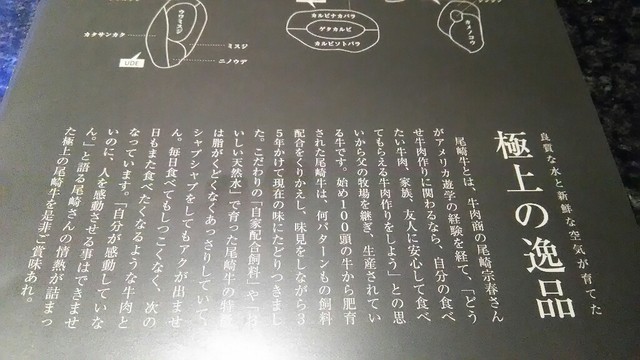 ウワミスジ
カタサンカク
ミスジ
ニノウデ
UDE
カルビナカバラ
ゲタカルビ
カルビソトバラ
カメノコウ
良質な水と新鮮な空気が育てた
極上の逸品
尾崎牛とは、牛肉商の尾崎宗春さん
がアメリカ遊学の経験を経て、「どう
せ牛肉作りに関わるなら、自分の食べ
たい牛肉、家族、友人に安心して食べ
てもらえる牛肉作りをしよう」との思
いから父の牧場を継ぎ、生産されてい
る牛です。始め100頭の牛から肥育
された尾崎牛は、何パターンもの飼料
配合をくりかえし、味見をしながら3
5年かけて現在の味にたどりつきまし
た。こだわりの「自家配合飼料」や「お
いしい天然水」で育った尾崎牛の特徴
は脂がくどくなくあっさりしていて、
シャブシャブをしてもアクが出ませ
ん。毎日食べてもしつこくなく、次の
日もまた食べたくなるような牛肉と
なっています。「自分が感動していな
いのに、人を感動させる事はできませ
ん。」と語る尾崎さんの情熱が詰まっ
た極上の尾崎牛を是非ご賞味あれ。